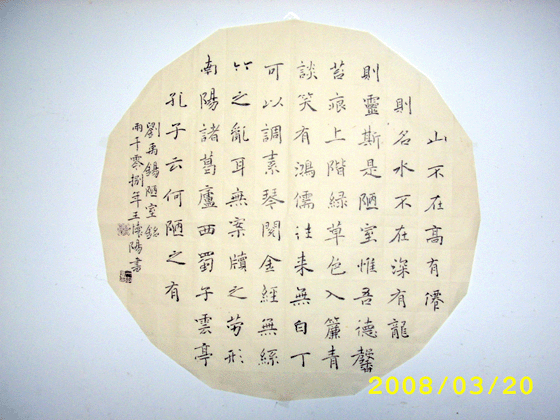 山不在高有僊
則名水不在深有龍
則靈斯是陋室惟吾德馨
苔痕上階綠草色入簾青
談笑有鴻儒往来無白丁
可以調素琴閱金經無絲
竹之亂耳無案牘之勞形
南陽諸葛廬西蜀子雲亭
孔子云何陋之有
劉禹錫陋室銘
兩千零捌年王陽書
2008/03/20